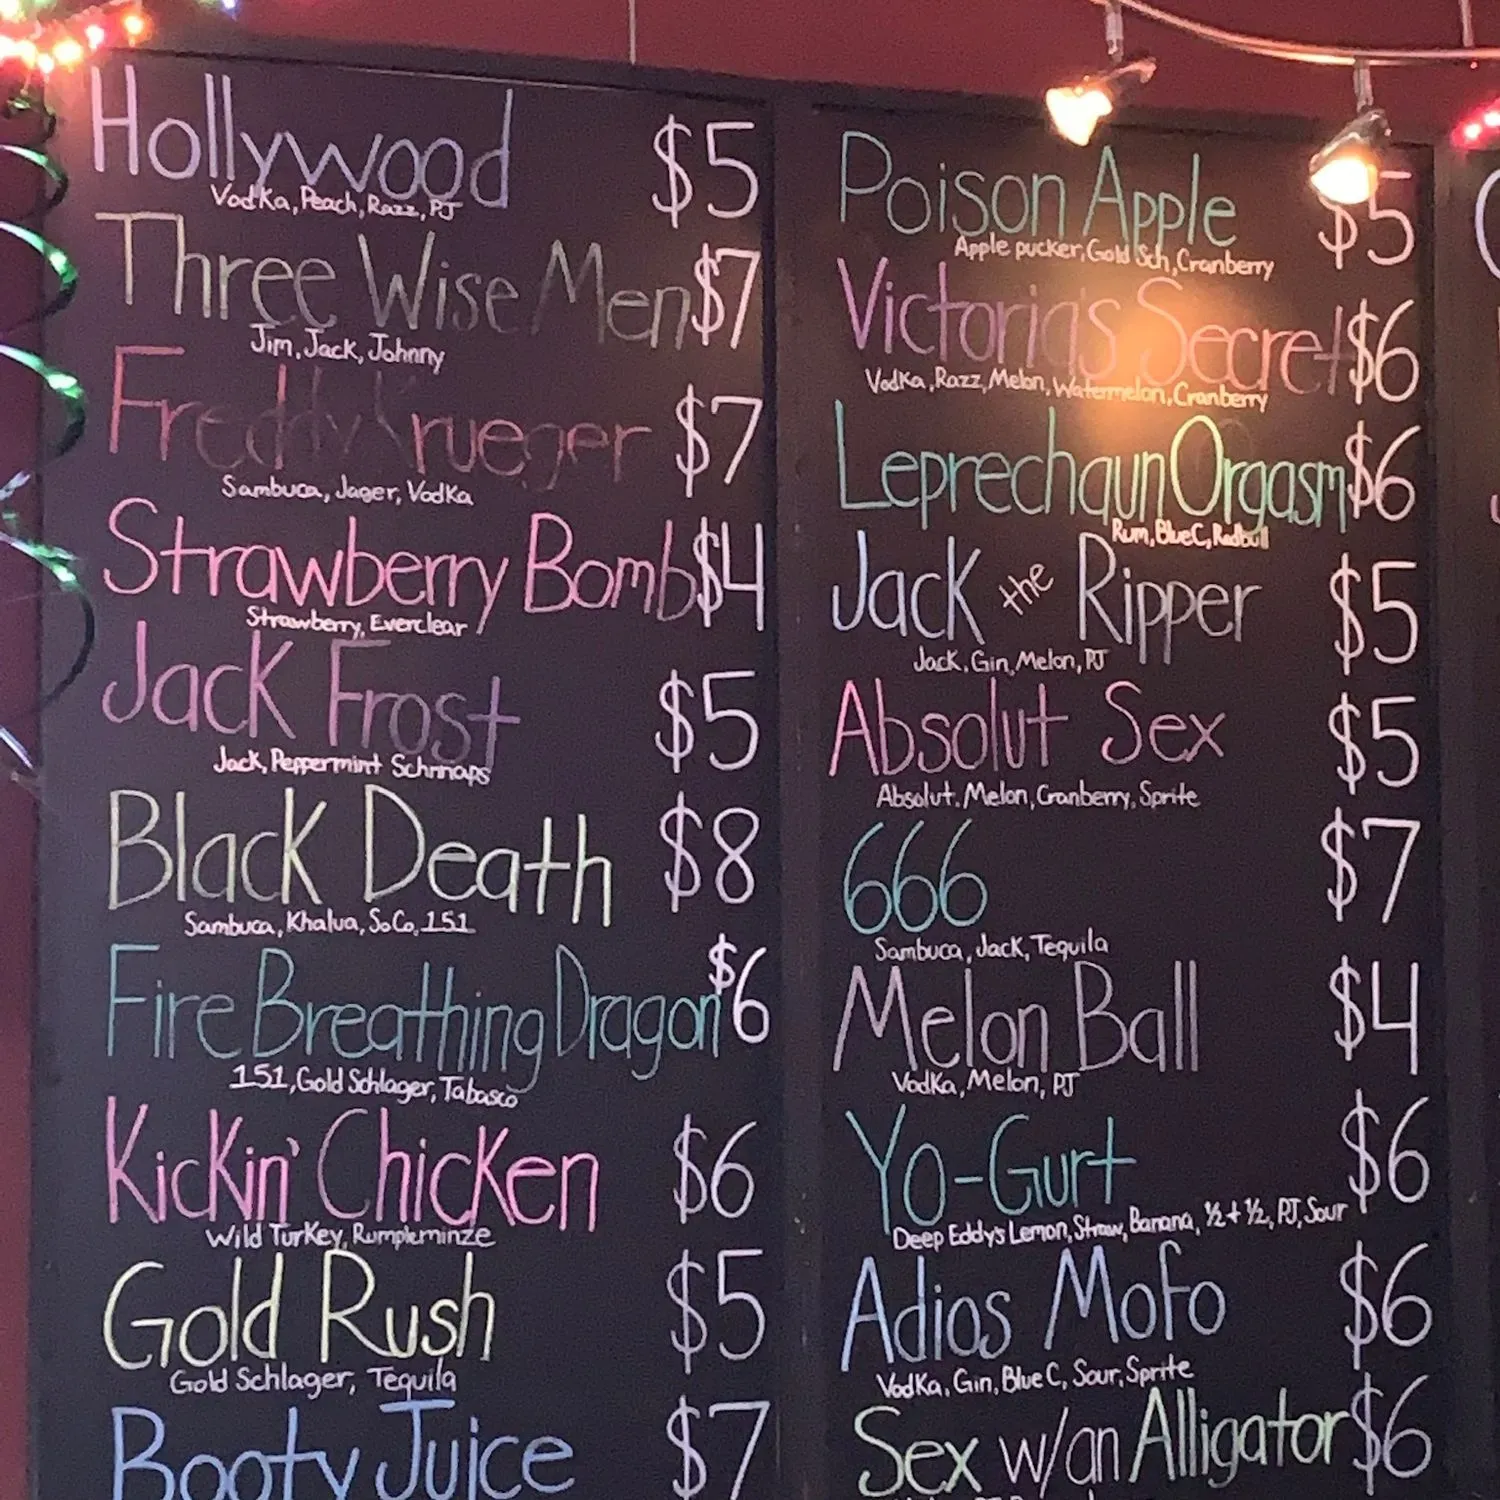 Hollywood $5
Vodka, Peach, Razz, PJ
Three Wise Men $7
Jim, Jack, Johnny
Freddy Krueger $7
Sambuca, Jager, Vodka
Strawberry Bomb $4
Strawberry, Everclear
Jack Frost $5
Jack, Peppermint Schnnaps
Black Death $8
Sambuca, Khalua, SoCo, 151
Fire Breathing Dragon $6
151, Gold Schlager, Tabasco
Kickin' Chicken $6
Wild Turkey, Rumpleminze
Gold Rush $5
Gold Schlager, Tequila
Booty Juice $7
Poison Apple $5
Apple pucker, Gold Sch, Cranberry
Victoria's Secret $6
Vodka, Razz, Melon, Watermelon, Cranberry
Leprechaun Orgasm $6
Rum, Blue C, Redbull
Jack the Ripper $5
Jack, Gin, Melon, PJ
Absolut Sex $5
Absolut, Melon, Cranberry, Sprite
666 $7
Sambuca, Jack, Tequila
Melon Ball $4
Vodka, Melon, PJ
Yo-Gurt $6
Deep Eddy's Lemon, Straw, Banana, ½ + ½, PJ, Sour
Adios Mofo $6
Vodka, Gin, Blue C, Sour, Sprite
Sex w/an Alligator $6